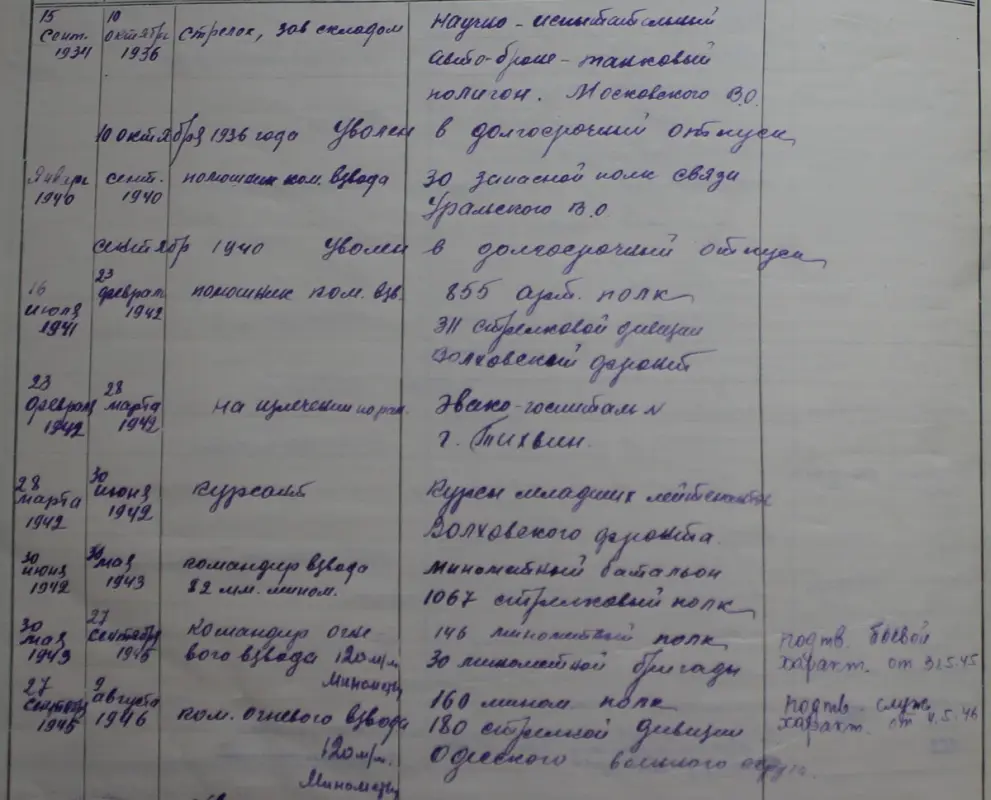 15 10 Научно-испытательный
сент. октября стрелок, зав складом авто-броне-танковый
1934 1936 полигон. Московского В.О.
10 октября 1936 года Уволен в долгосрочный отпуск
январь сент. помошник ком. взвода 30 запасной полк связи
1940 1940 Уральского В.О.
сентябр 1940 Уволен в долгосрочный отпуск
16 23
июля феврал помошник ком. взв. 855 арт. полк
1941 1942 311 стрелковой дивизии
Волховский фронт
23 28
феврал марта на излечении по ран. Эвако-госпиталь №
1942 1942 г. Тихвин.
28 30
марта июня курсант Курсы младших лейтенантов
1942 1942 Волховского фронта.
30 30
июня мая командир взвода минометный батальон
1942 1943 82 мм. мином. 1067 стрелковый полк
30 27
мая сентября командир огне 146 минометный полк подтв. боевой
1943 1945 вого взвода 120 м/м. 30 минометной бригады характ. от 31.5.45
минометы
27 9
сентября августа ком. огневого взвода 160 мином. полк подтв. служ
1945 1946 120 м/м. 180 стрелкой дивизии характ. от 4.5.46
Минометы Одесского военного округа.